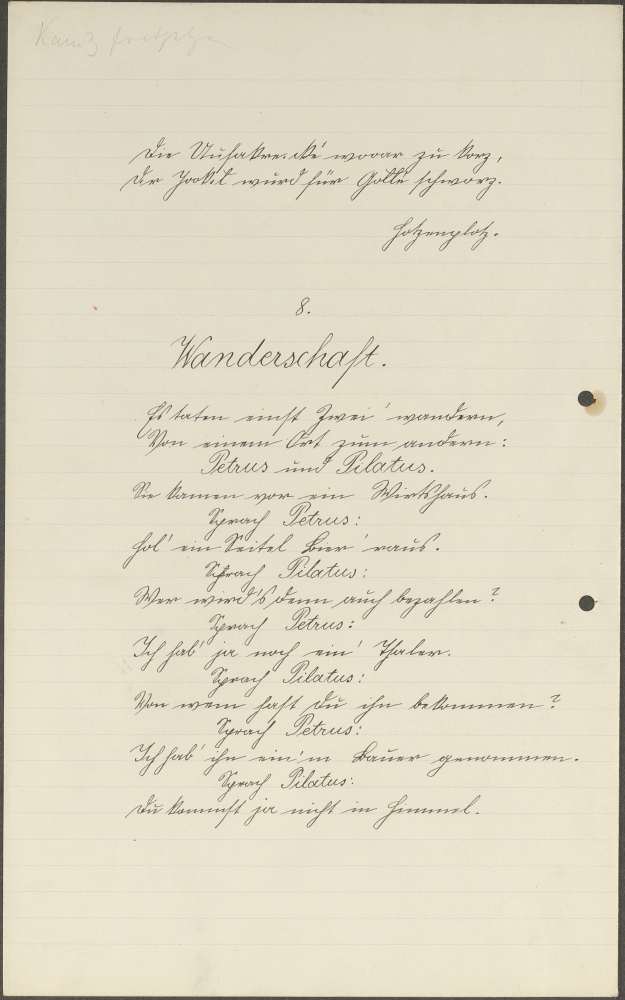 Die woar zu korz,
Der wurd für Golle schworz.
Hotzenplotz.
8.
Wanderschaft.
Es taten einst Zwei' wandern,
Von einem Ort zum andern:
Petrus und Pilatus.
Sie kamen vor ein Wirtshaus.
Sprach Petrus:
Hol' ein Seitel Bier 'raus.
Sprach Pilatus:
Wer wird's denn auch bezahlen?
Sprach Petrus:
Ich hab' ja noch ein' Thaler.
Sprach Pilatus:
Von wem hast Du ihn bekommen?
Sprach Petrus:
Ich hab' ihn ein'm Bauer genommen.
Sprach Pilatus:
Du kommst ja nicht in Himmel.